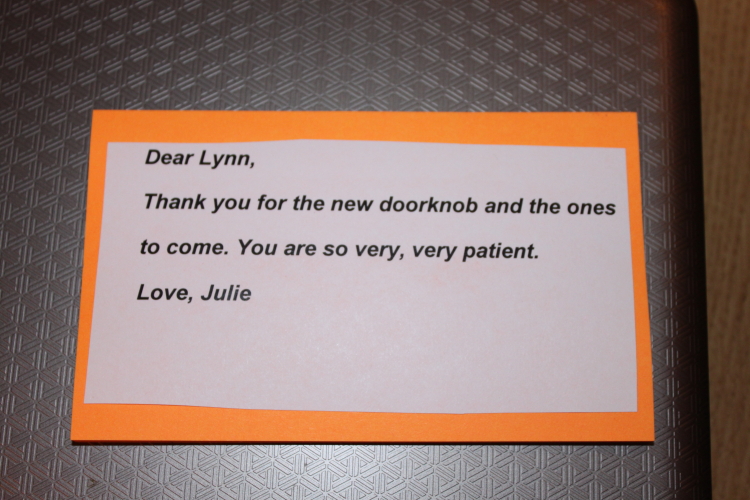 Dear Lynn,
Thank you for the new doorknob and the ones
to come. You are so very, very patient.
Love, Julie